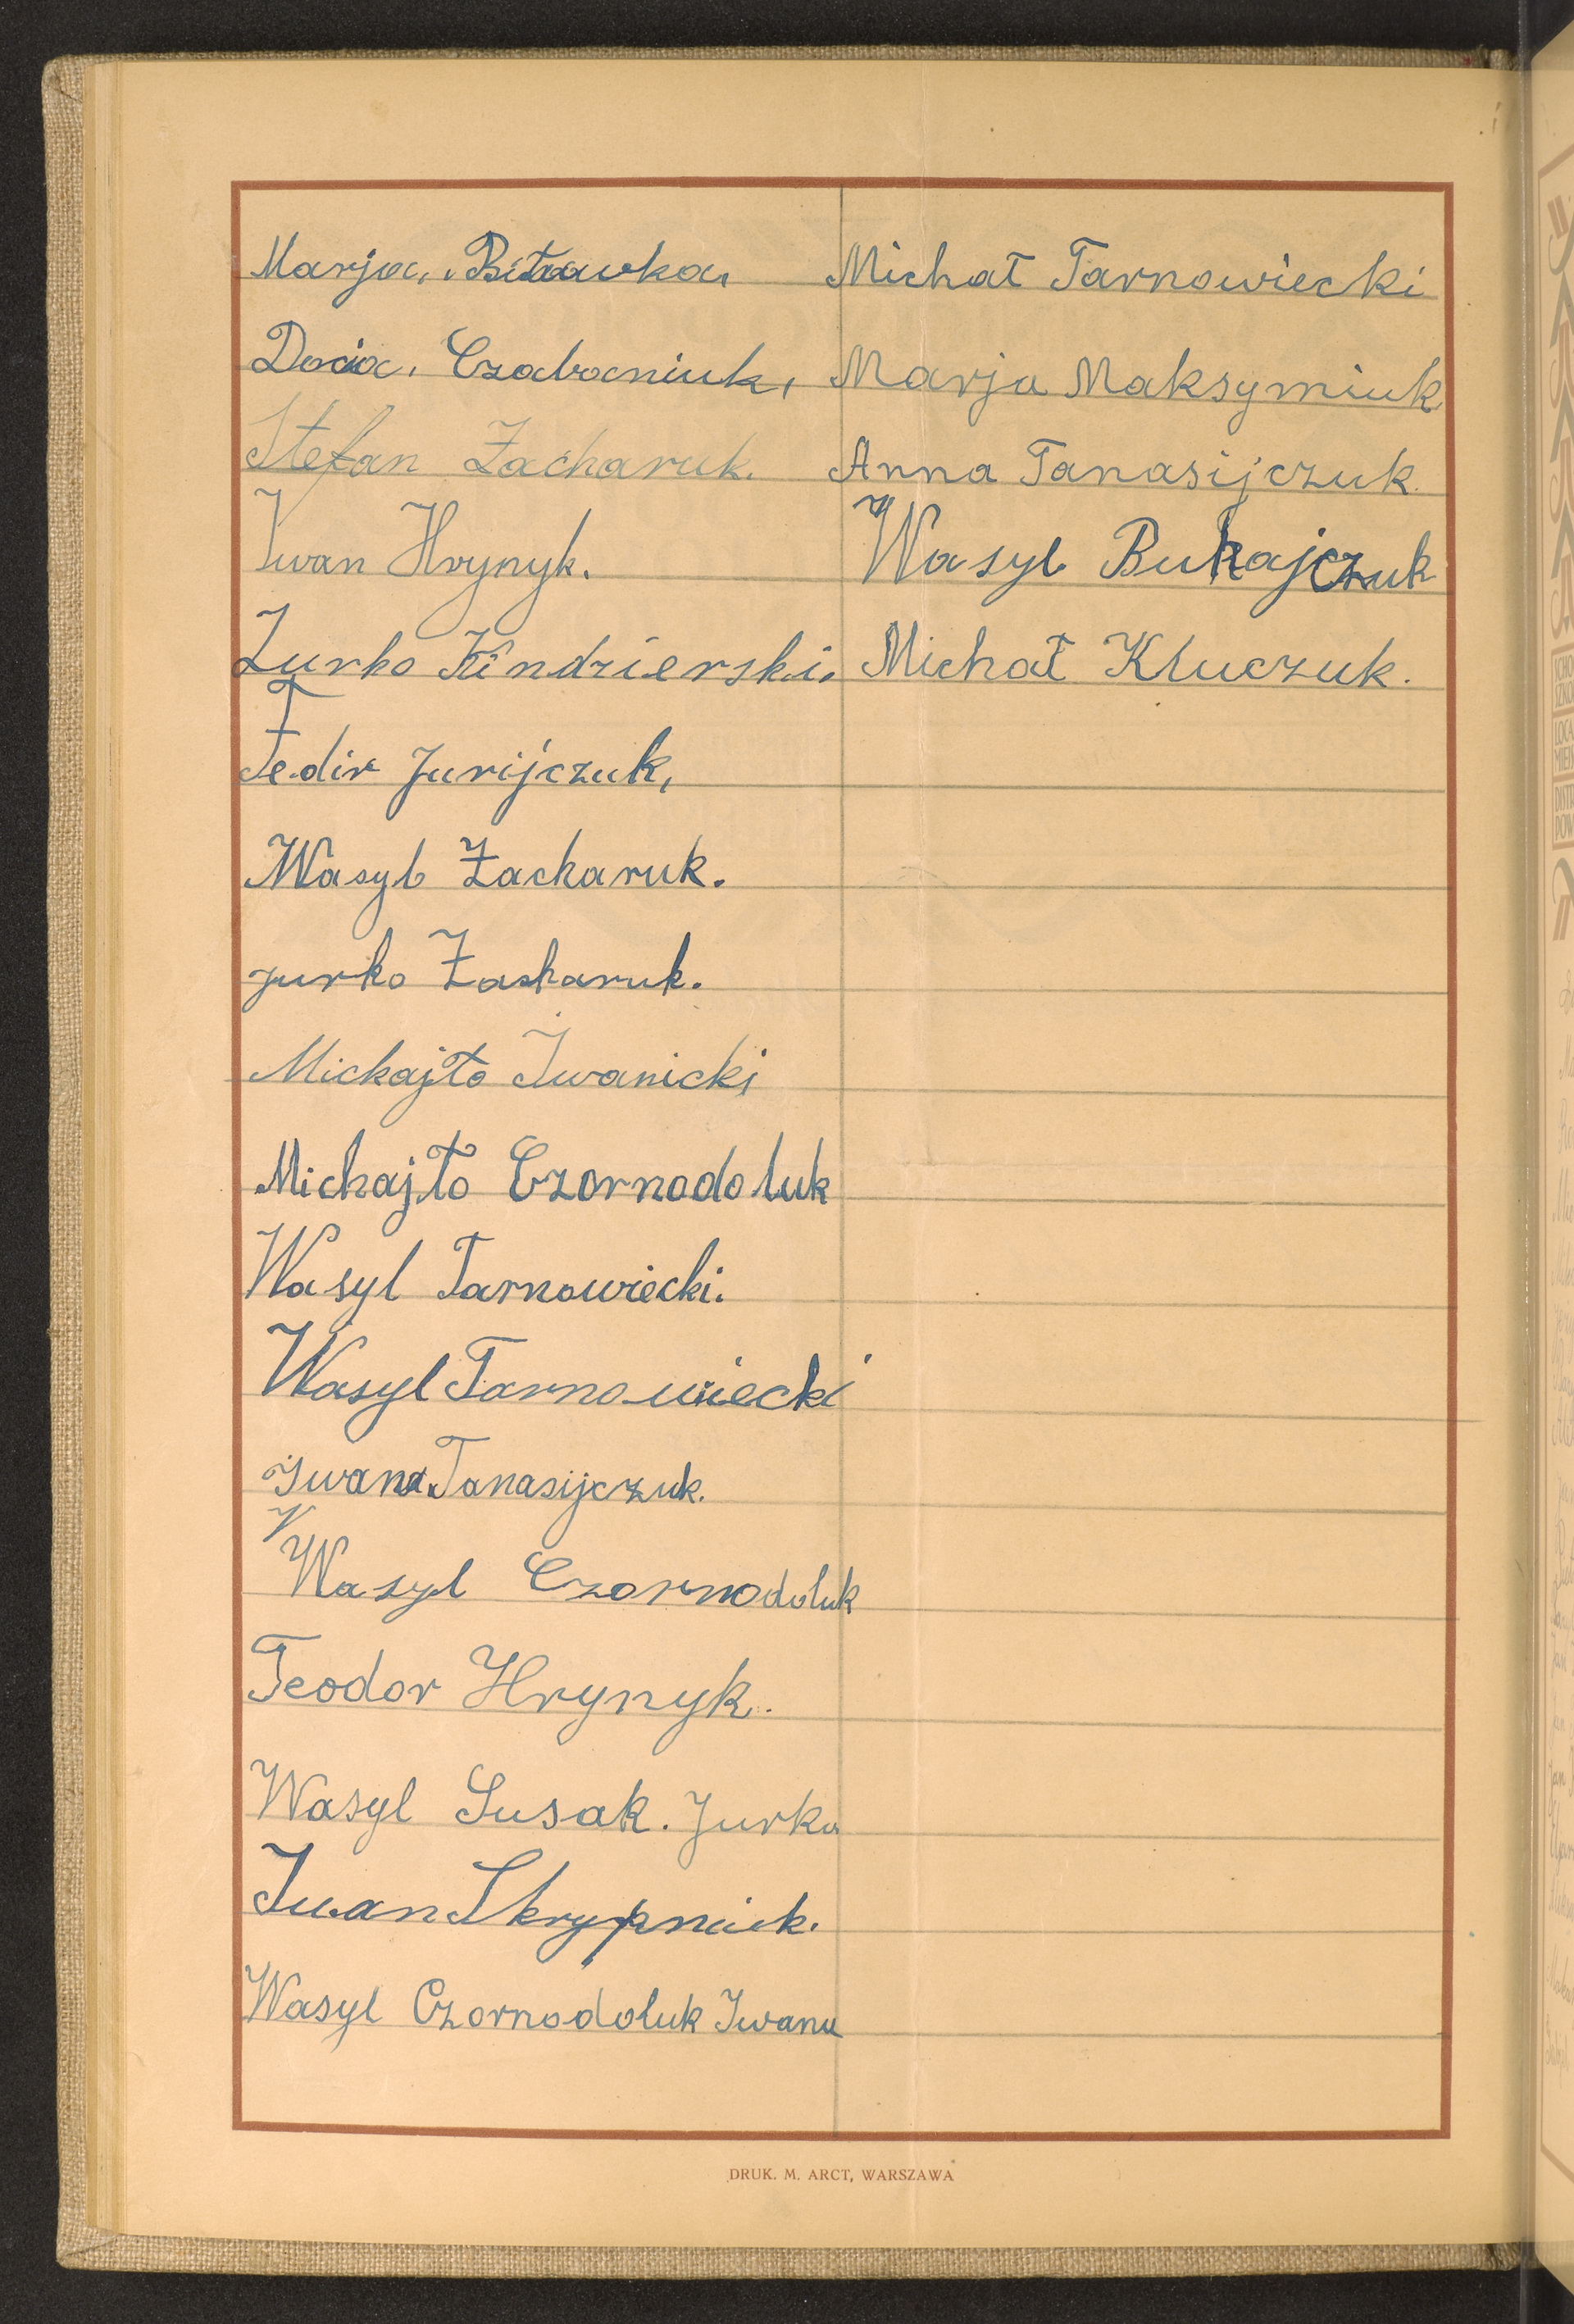 Marja
Docia. Czabaniuk,
Stefan Zacharuk.
Iwan Hrynyk.
Jurko Kindzierski.
Fedir Jurijczuk,
Wasyl Zacharuk.
Jurko Zacharuk.
Michajło Iwanicki
Michajło Czornodoluk
Wasyl Tarnowiecki.
Wasyl Tarnowiecki
Iwana Tanasijczuk.
Wasyl Czornodoluk
Teodor Hrynyk.
Wasyl Susak. Jurka
Iwan Skrypniek.
Wasyl Czornodoluk Iwana
Michał Tarnowiecki
Marja Maksymiuk
Anna Tanasijczuk.
Wasyl Bukajczuk
Michał Kluczuk.
DRUK. M. ARCT, WARSZAWA